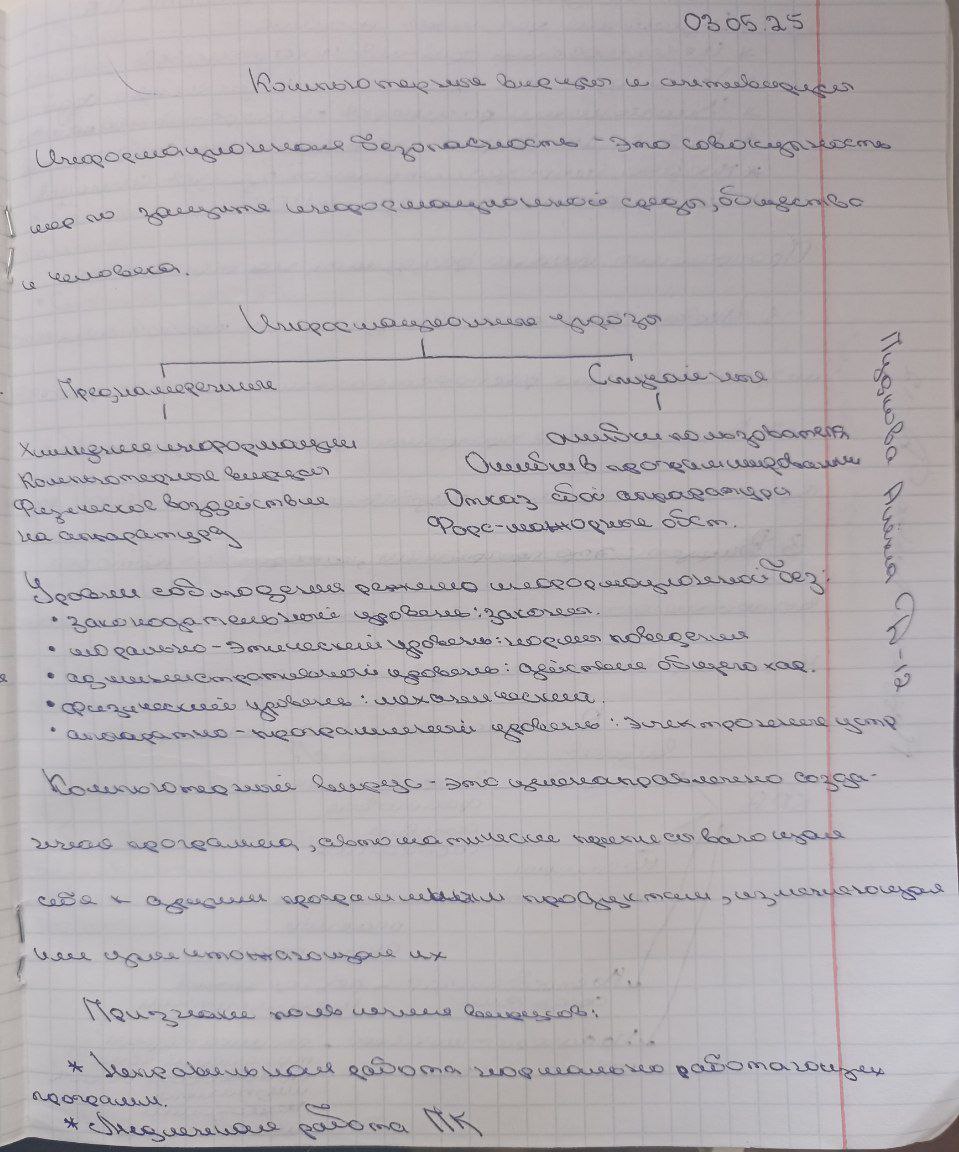 03.05.25
Компьютерные вирусы и антивирусы
Информационная безопасность - это совокупность
мер по защите информационной среды, общества
и человека.
Информационные угрозы
Преднамеренные
Случайные
Хищение информации
Компьютерные вирусы
Физическое воздействие
на аппаратуру
Ошибки пользователя
Ошибки в программировании
Отказ сбой аппаратуры
Форс-мажорные обст.
Уровни соблюдения режима информационной без:
• законодательный уровень: законы.
• морально-этический уровень: нормы поведения
• административный уровень: действие общего хар.
• физический уровень: механический.
• аппаратно-программный уровень: электронные устр
Компьютерный вирус - это целенаправленно созда-
ная программа, автоматически приписывающая
себя к другим программным продуктам, изменяющая
или уничтожающая их
Признаки появления вирусов:
* Неправильная работа нормально работающих
программ.
* Медленная работа ПК